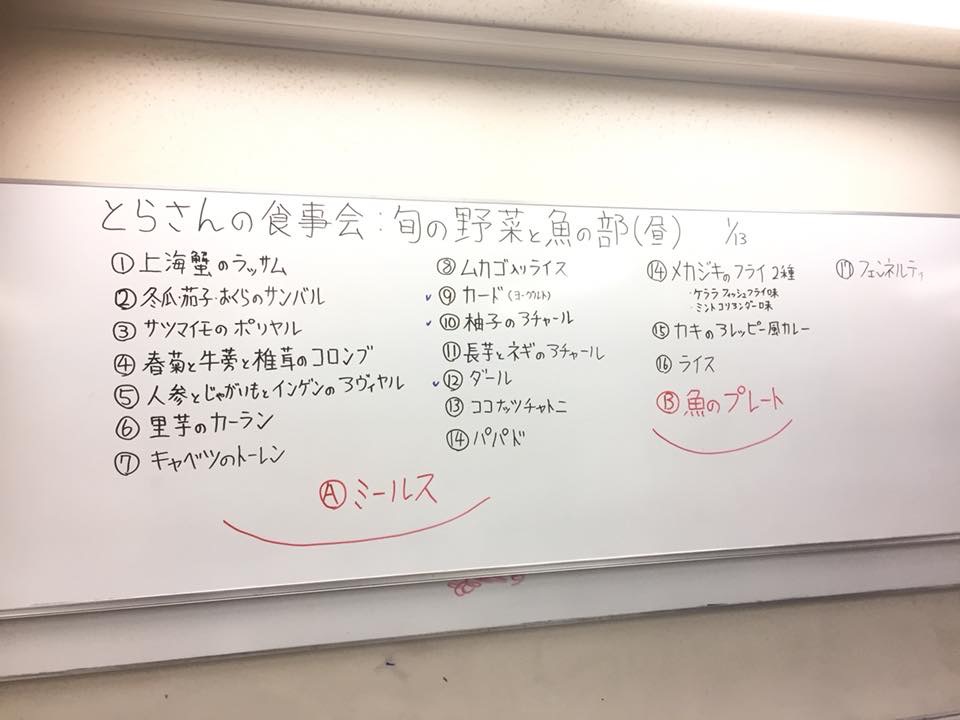 とらさんの食事会:旬の野菜と魚の部(昼) 1/13
①上海蟹のラッサム
②冬瓜・茄子・おくらのサンバル
③サツマイモのポリヤル
④春菊と牛蒡と椎茸のコロンブ
⑤人参とじゃがいもとインゲンのアヴィヤル
⑥里芋のカーラン
⑦キャベツのトーレン
Ⓐミールス
⑧ムカゴ入りライス
⑨カード(ヨーグルト)
⑩柚子のアチャール
⑪長芋とネギのアチャール
⑫ダール
⑬ココナッツチャトニ
⑭パパド
⑭メカジキのフライ2種
・ケララフィッシュフライ味
・ミントコリアンダー味
⑮カキのアレッピー風カレー
⑯ライス
Ⓑ魚のプレート
⑰フェンネルティ